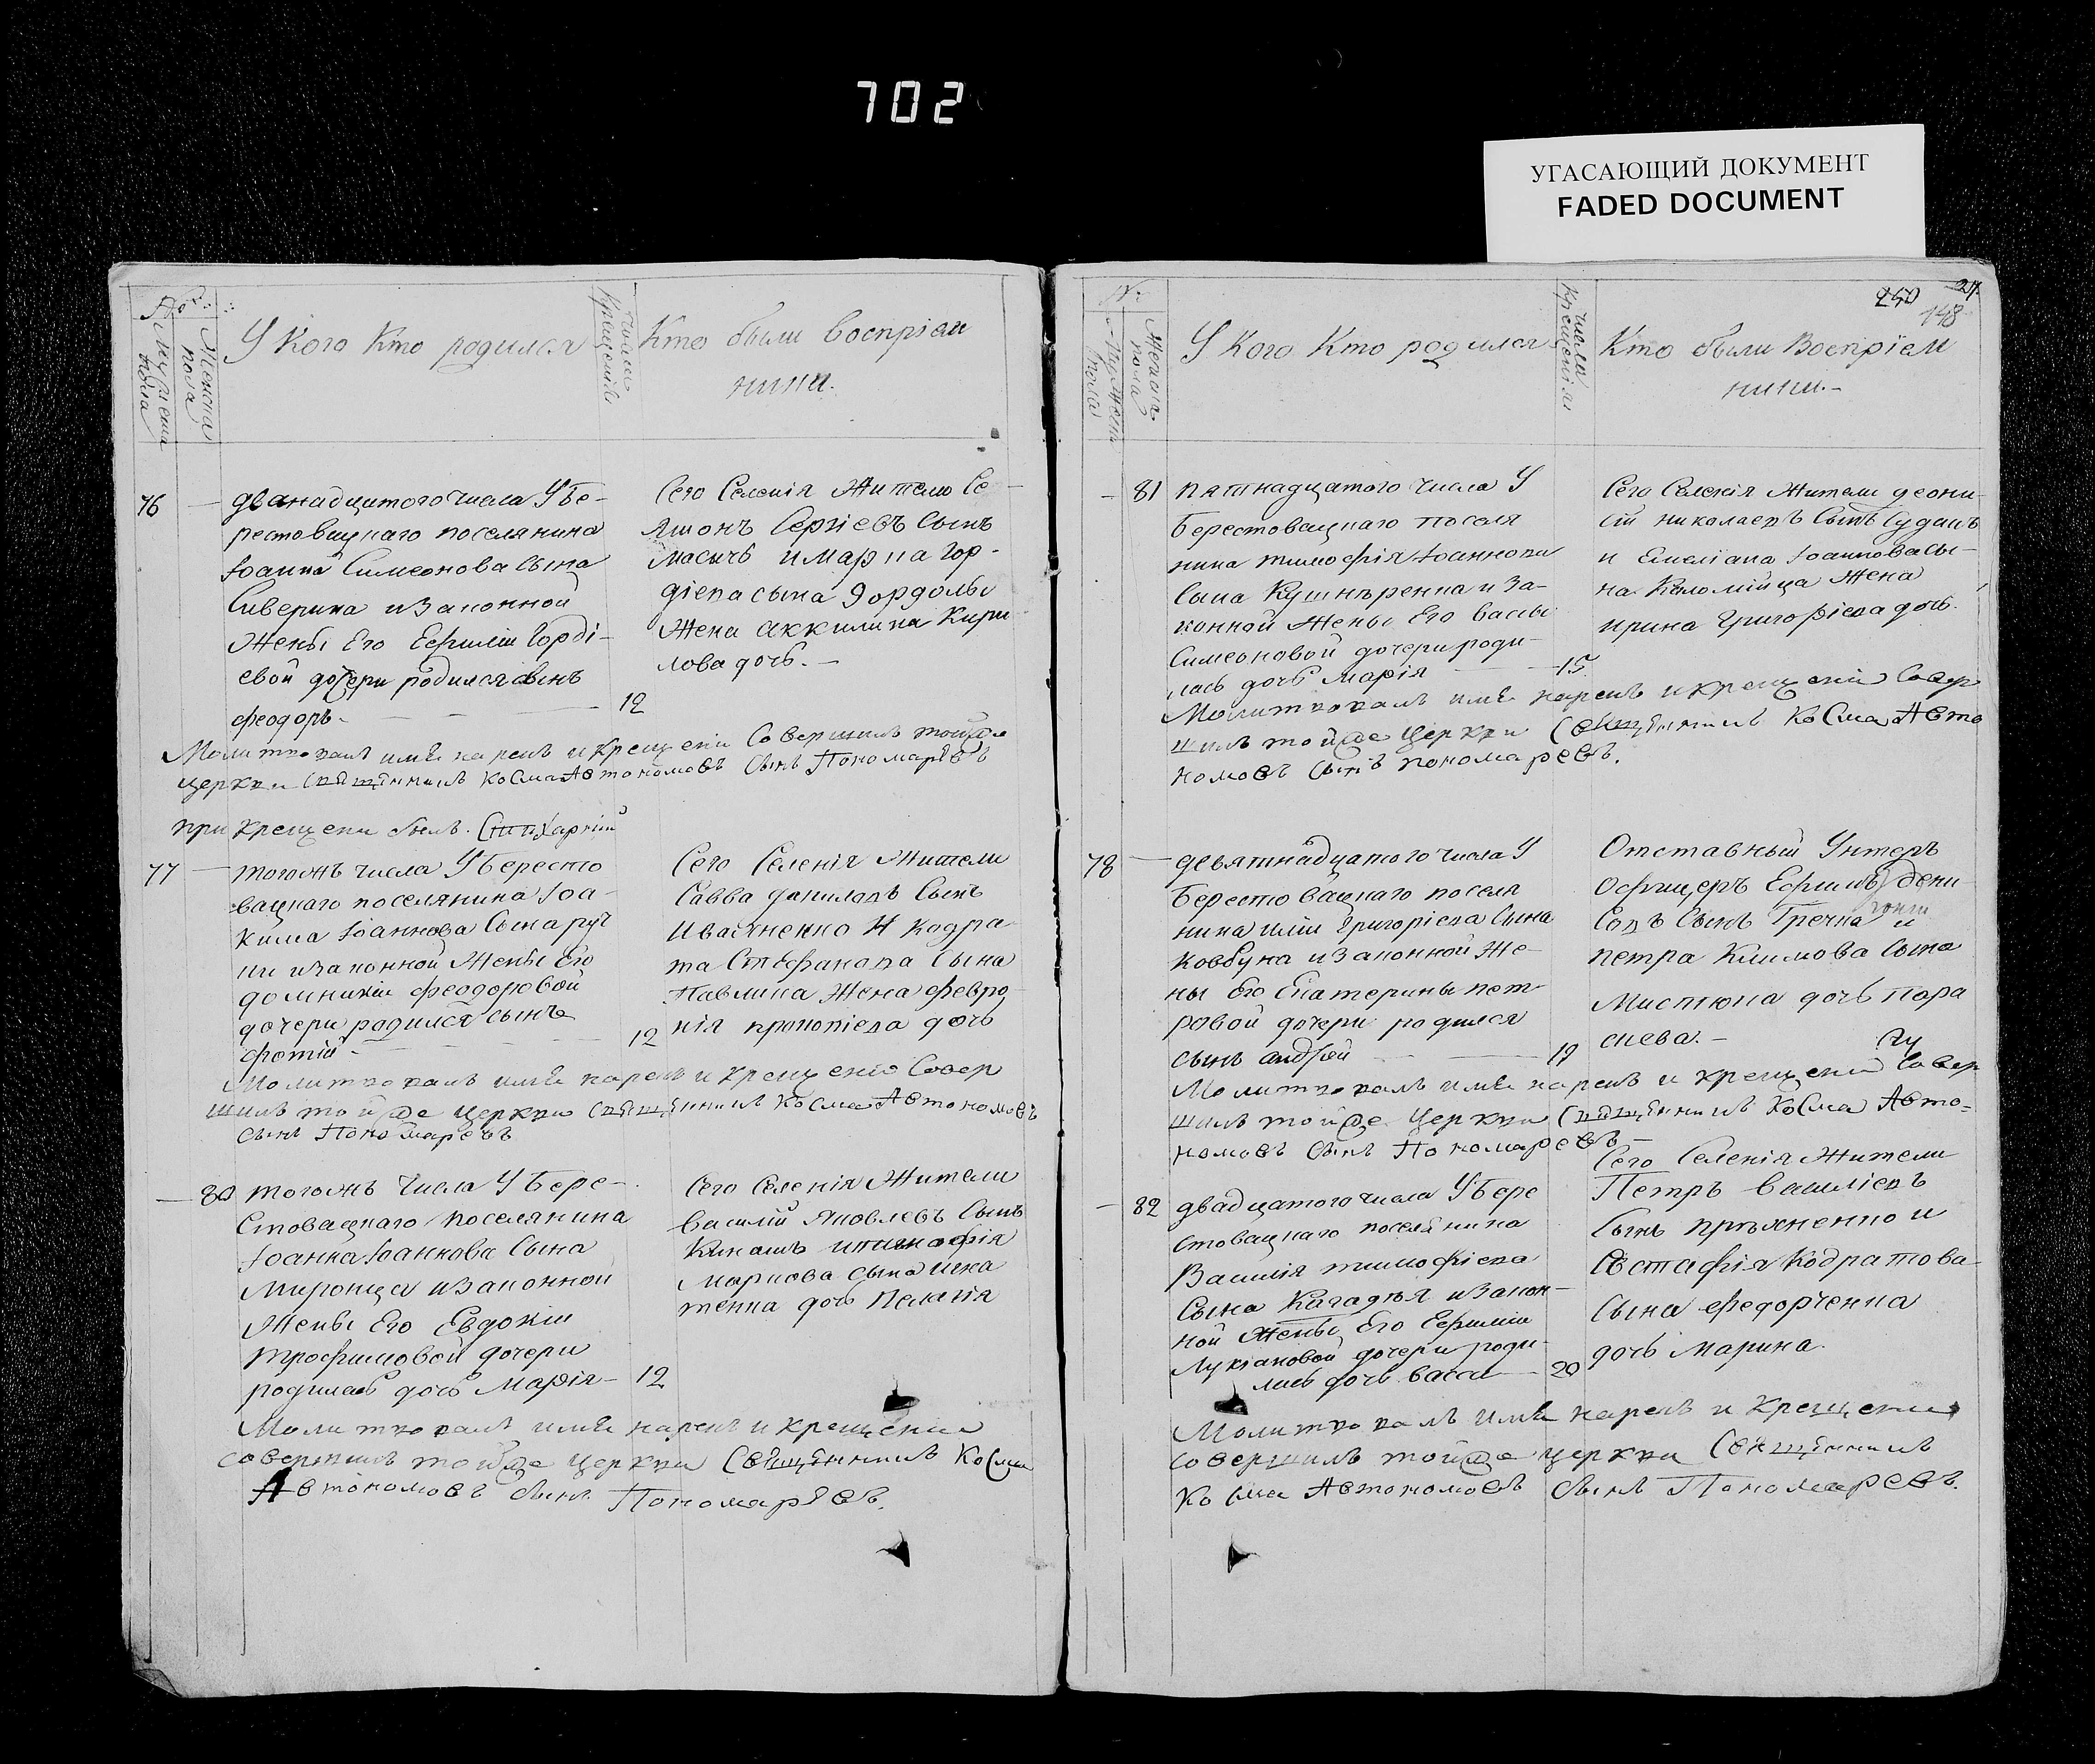 702
УГАСАЮЩИЙ ДОКУМЕНТ
FADED DOCUMENT
Мужеска пола
Женска пола
У кого кто родился
Число крещенія
Кто были воспріем
ники.
76
дванадцятого числа У Бе-
рестовацкаго поселянина
Іоанна Симеонова сына
Сиверина и законной
Жены Его Ефиміи Горді-
евой дочери родился сынъ
феодоръ. 12
Сего Селенія Жители Се
Масычъ и Марка Гор-
діева сына
Жена Аккилина Кири
лова дочь. —
Молитвовалъ имя нарекъ и крещеніе Совершилъ тойже
церкви Священникъ Косма Автономовъ Сынъ Пономарѣвъ
при крещени былъ.
77
тогожъ числа У Бересто
вацкаго поселянина Іоа-
кима Іоаннова Сына
и законной Жены Его
домникіи феодоровой
дочери родился сынъ
фотій - 12
Сего Селенія Жители
Савва даниловъ Сынъ
Иваскненко И Кодра
та Стефанова Сына
Павлика Жена февро
нія прокопіева дочь
Молитвовалъ имя нарекъ и крещеніе Совер
шилъ тойже церкви Священникъ Косма Автономовъ
сынъ Пономаревъ
80
тогожъ числа У Бере-
стовацкаго поселянина
Іоанна Іоаннова Сына
Миронца и законной
Жены Его Евдокіи
трофимовой дочери
родилась дочь Марія - 12
Сего Селенія Жители
василій Яковлевъ Сынъ
Маркова сына
дочь Пелагія
Молитвовалъ имя нарекъ и крещеніе
совершилъ тойже церкви Священникъ Косма
Автономовъ Сынъ Пономарѣвъ.
№
У Кого Кто родился
Число крещенія
Кто были Воспріем
ники.-
250
148
81
пятнадцатого числа У
Берестовацкаго поселя
нина тимофія Іоаннова
сына Кушнѣренка и за-
конной Жены Его васы
Симеоновой дочери роди
лась дочь Марія 15
Сего Селенія Жители деони-
сій николаевъ Сынъ Суданъ
и Емеліана Іоаннова сы-
на Коломійца Жена
ирина Григоріева дочь.
Молитвовалъ имя нарекъ и крещеніе Совер
шилъ тойже церкви Священникъ Косма Авто
номовъ Сынъ пономаревъ.
78
девятнадцатого числа У
Берестовацкаго поселя
нина иліи Григоріева Сына
Ковбуна и законной Же-
ны Его Екатерины пет-
ровой дочери родился
сынъ андрей 19
Отставный Унтеръ
Офицеръ Ефимъ дени
совъ Сынъ Гречка и
петра Климова сына
дочь Пара
скева. -
Молитвовалъ имя нарекъ и крещеніе Совер
шилъ тойже церкви Священникъ Косма Авто=
номовъ Сынъ Пономаревъ —
82
двадцатого числа У Бере
стовацкаго поселянина
Василія тимофіева
Сына и закон-
ной Жены Его Ефиміи
Лукіановой дочери роди
лась дочь васса 20
Сего Селенія Жители
Петръ василіевъ
Сынъ и
Евстафія Кодратова
Сына федорченка
дочь Марина.
Молитвовалъ имя нарекъ и Крещеніе
совершилъ тойже церкви Священникъ
Косма Автономовъ Сынъ Пономаревъ.